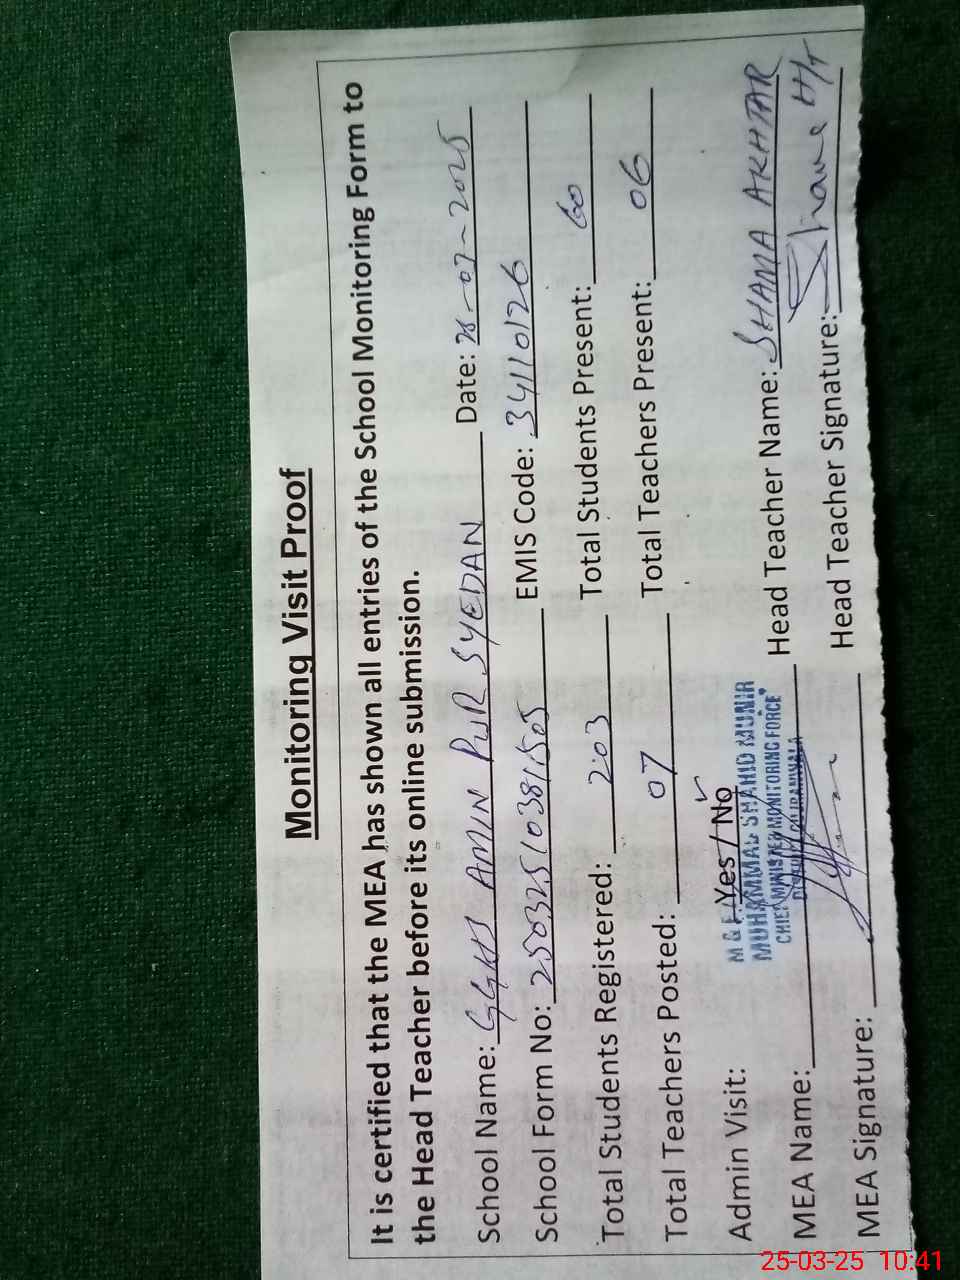 Monitoring Visit Proof
It is certified that the MEA has shown all entries of the School Monitoring Form to
the Head Teacher before its online submission.
School Name: GGHS AMIN PUR SYEDAN Date: 28-07-2025
School Form No: EMIS Code: 34110126
Total Students Registered: 203 Total Students Present: 60
Total Teachers Posted: 07 Total Teachers Present: 06
Admin Visit: Yes / No ✓
M & E
MUHAMMAD SHAHID MUNIR
CHIEF MINISTER MONITORING FORCE
MEA Name: Head Teacher Name: SHAMA AKHTAR
MEA Signature: Head Teacher Signature: H/T
25-03-25 10:41